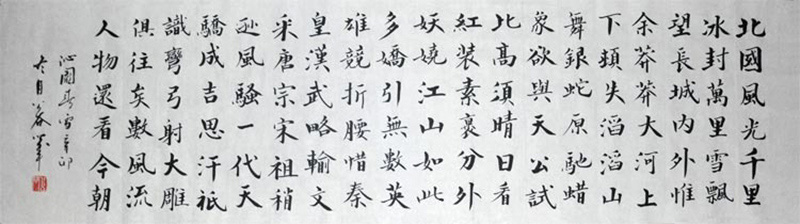 北國風光千里
冰封萬里雪飄
望長城內外惟
余莽莽大河上
下頓失滔滔山
舞銀蛇原馳蜡
象欲與天公試
比高須晴日看
紅装素裹分外
妖嬈江山如此
多嬌引無數英
雄競折腰惜秦
皇漢武略輸文
采唐宗宋祖稍
逊風騷一代天
驕成吉思汗祇
識彎弓射大雕
俱往矣數風流
人物還看今朝
沁園春雪辛卯
冬月